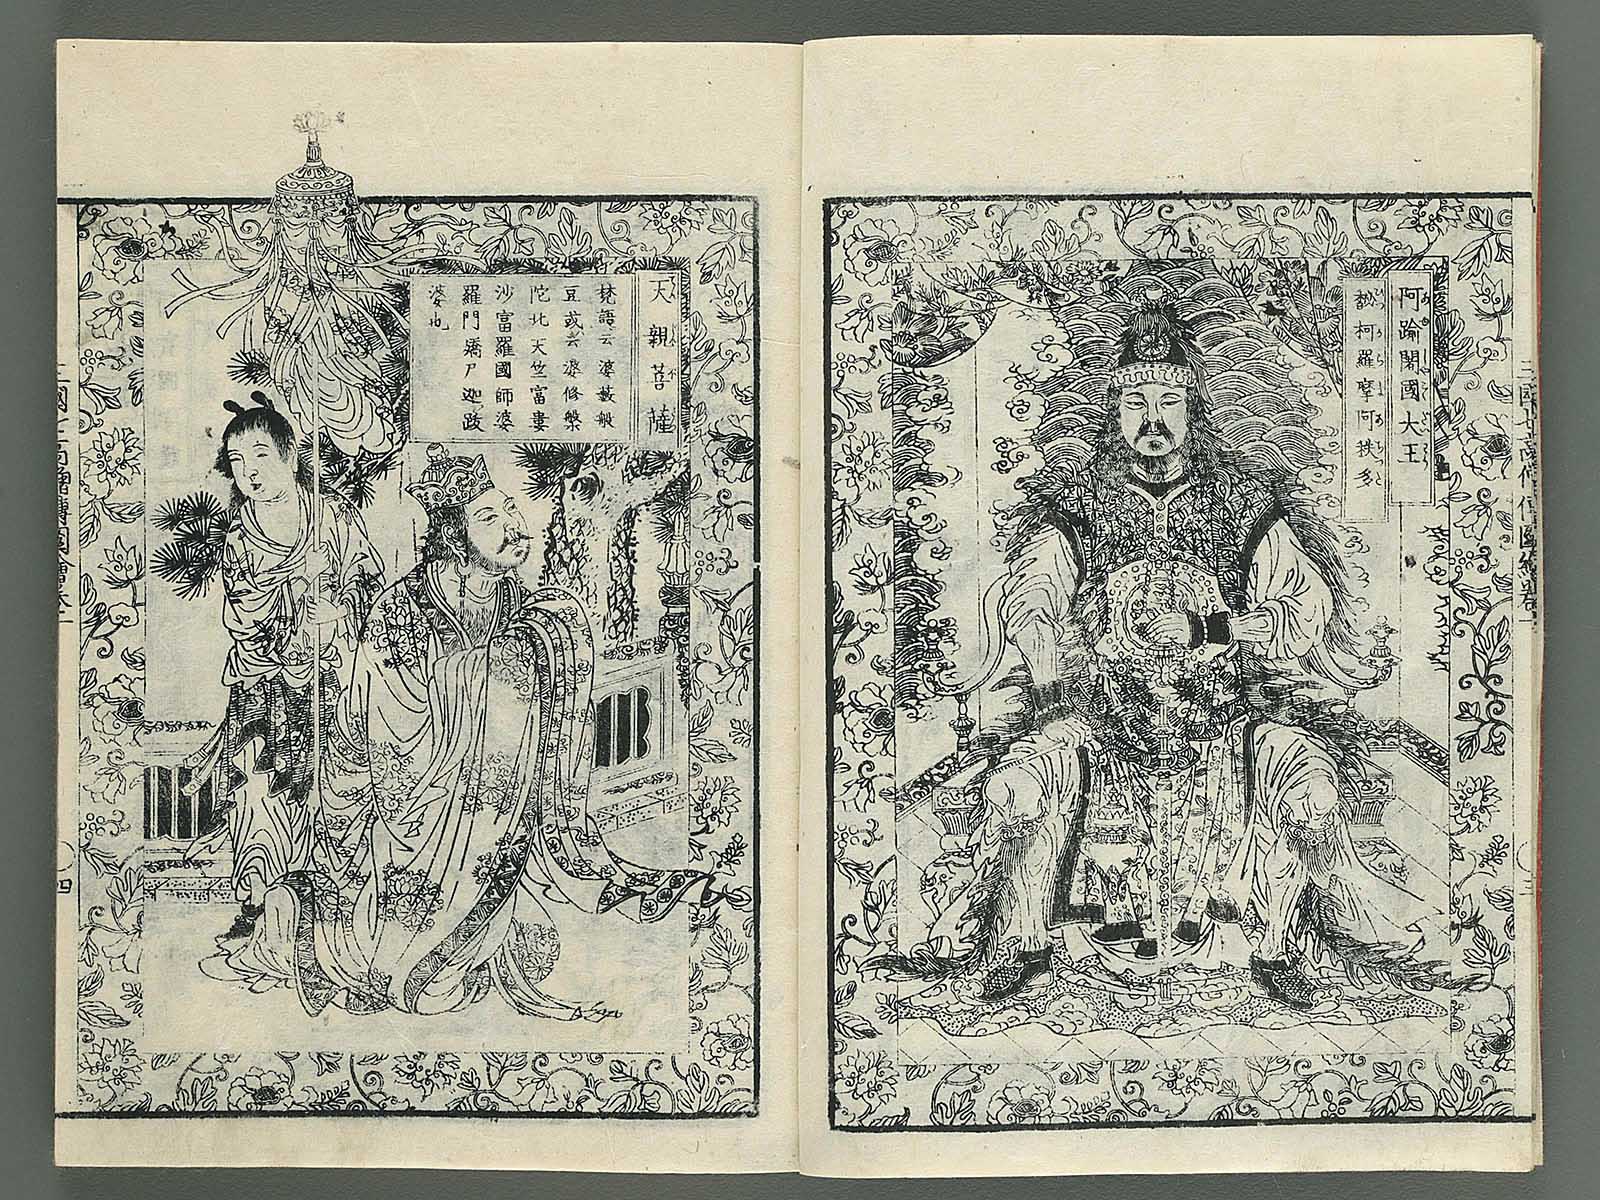 阿踰闍國大王
馝柯羅摩阿秩多
三國七高僧傳圖繪卷一
〇三
天親菩薩
梵語云婆藪般
豆或云婆修槃
陀北天竺富婁
沙富羅國師婆
羅門嬌尸迦政
婆也
三國七高僧傳圖繪卷一
〇四